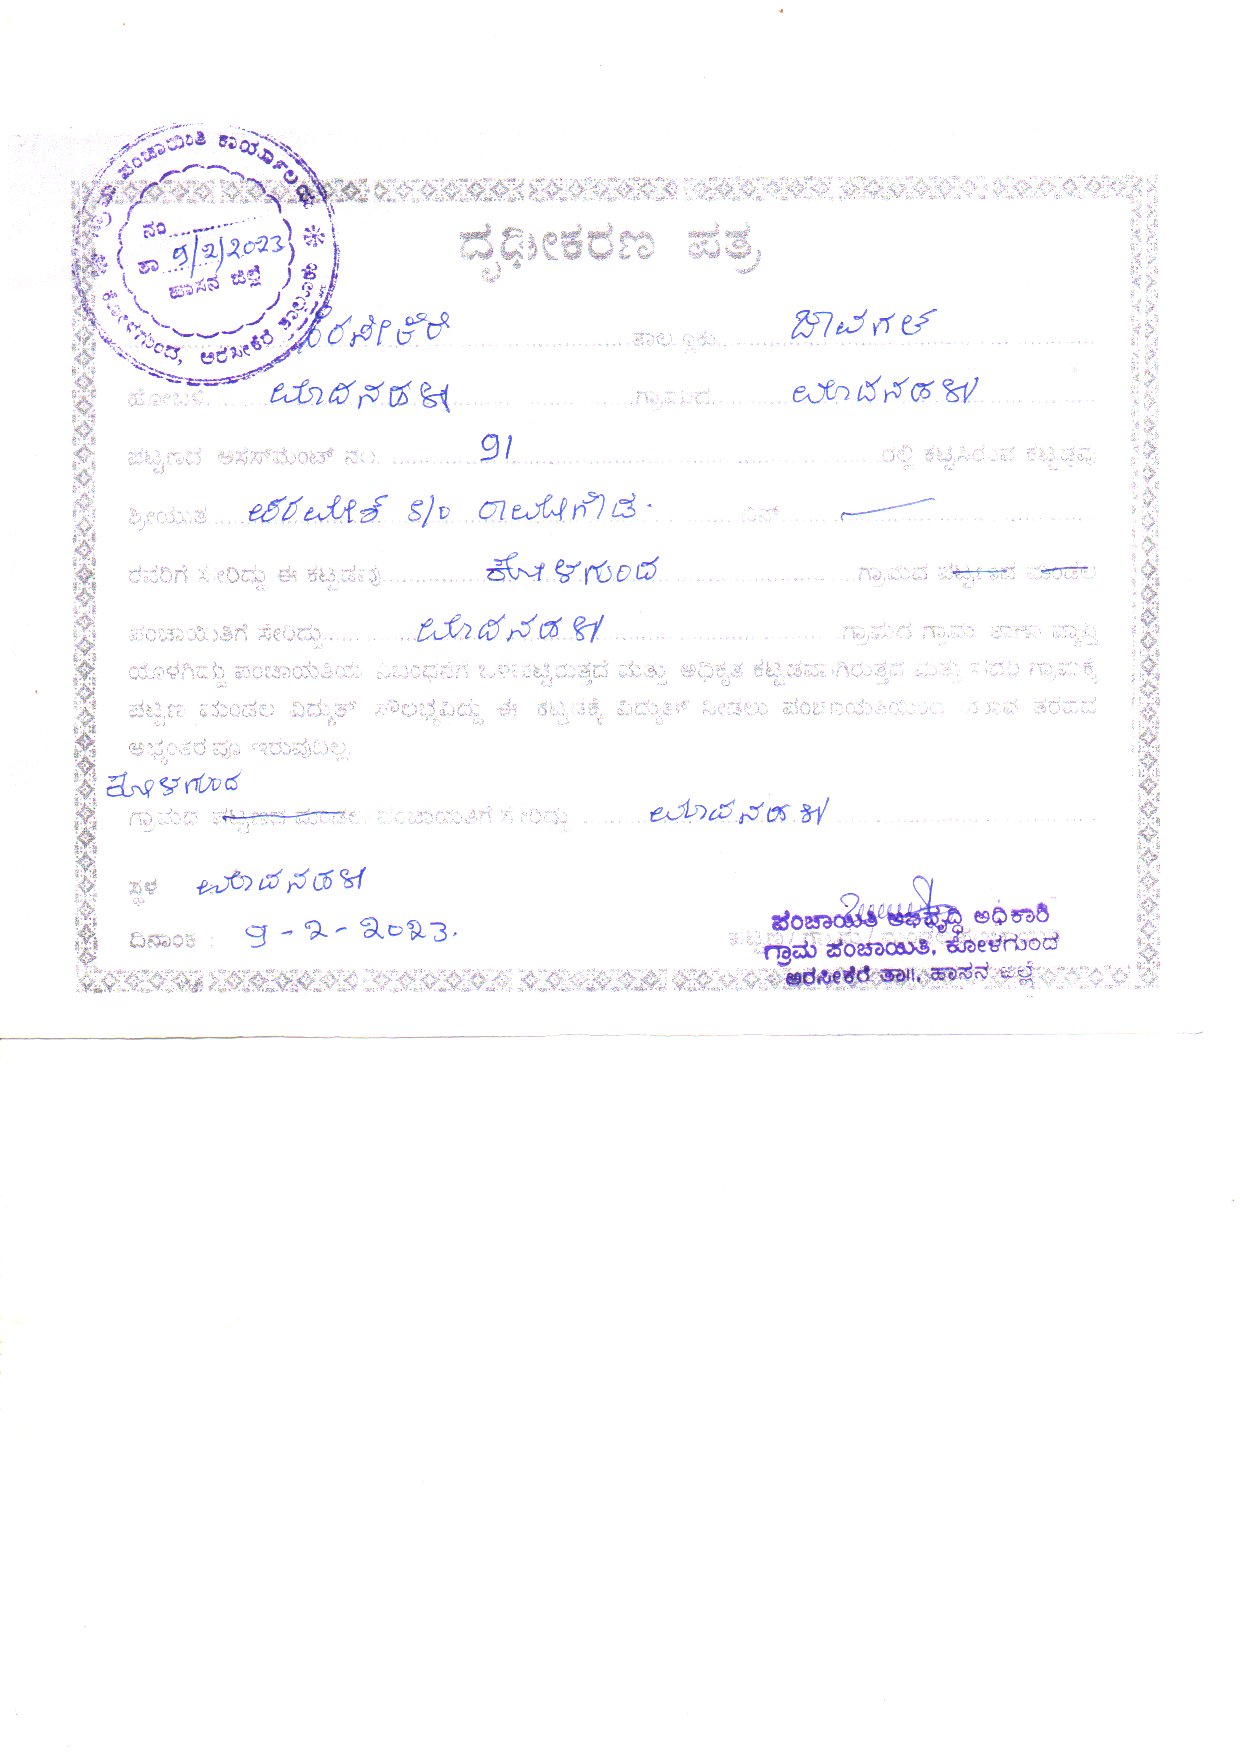 ಗ್ರಾಮ ಪಂಚಾಯಿತಿ ಕಾರ್ಯಾಲಯ
ನಂ
ತಾ 9/2/2023
ಹಾಸನ ಜಿಲ್ಲೆ
ಕೋಳಗುಂದ, ಅರಸೀಕೆರೆ ತಾಲ್ಲೂಕು
ದೃಢೀಕರಣ ಪತ್ರ
ಅರಸೀಕೆರೆ ತಾಲ್ಲೂಕು ಜಾವಗಲ್
ಹೋಬಳಿ ಮಾದನಹಳ್ಳಿ ಗ್ರಾಮದ ಮಾದನಹಳ್ಳಿ
ಪಟ್ಟಣದ ಅಸಸ್‌ಮೆಂಟ್ ನಂ. 91 ರಲ್ಲಿ ಕಟ್ಟಿಸಿರುವ ಕಟ್ಟಡವು
ಶ್ರೀಯುತ ಪರಮೇಶ್ S/o ರಾಮೇಗೌಡ. ಬಿನ್
ರವರಿಗೆ ಸೇರಿದ್ದು ಈ ಕಟ್ಟಡವು ಕೋಳಗುಂದ ಗ್ರಾಮದ ಪಟ್ಟಣದ ಮಂಡಲ
ಪಂಚಾಯಿತಿಗೆ ಸೇರಿದ್ದು ಮಾದನಹಳ್ಳಿ ಗ್ರಾಮದ ಗ್ರಾಮ ಠಾಣಾ ವ್ಯಾಪ್ತಿ
ಯೊಳಗಿದ್ದು ಪಂಚಾಯತಿಯ ನಿಬಂಧನೆಗೆ ಒಳಪಟ್ಟಿರುತ್ತದೆ ಮತ್ತು ಅಧಿಕೃತ ಕಟ್ಟಡವಾಗಿರುತ್ತದೆ ಮತ್ತು ಸದರಿ ಗ್ರಾಮಕ್ಕೆ
ಪಟ್ಟಣ ಮಂಡಲ ವಿದ್ಯುತ್ ಸೌಲಭ್ಯವಿದ್ದು ಈ ಕಟ್ಟಡಕ್ಕೆ ವಿದ್ಯುತ್ ನೀಡಲು ಪಂಚಾಯತಿಯಿಂದ ಯಾವ ತರಹದ
ಅಭ್ಯಂತರವೂ ಇರುವುದಿಲ್ಲ.
ಕೋಳಗುಂದ
ಗ್ರಾಮದ ಪಟ್ಟಣದ ಮಂಡಲ ಪಂಚಾಯತಿಗೆ ಸೇರಿದ್ದು ಮಾದನಹಳ್ಳಿ
ಸ್ಥಳ ಮಾದನಹಳ್ಳಿ
ದಿನಾಂಕ : 9-2-2023.
ಪಂಚಾಯಿತಿ ಅಭಿವೃದ್ಧಿ ಅಧಿಕಾರಿ
ಗ್ರಾಮ ಪಂಚಾಯಿತಿ, ಕೋಳಗುಂದ
ಅರಸೀಕೆರೆ ತಾ||, ಹಾಸನ ಜಿಲ್ಲೆ